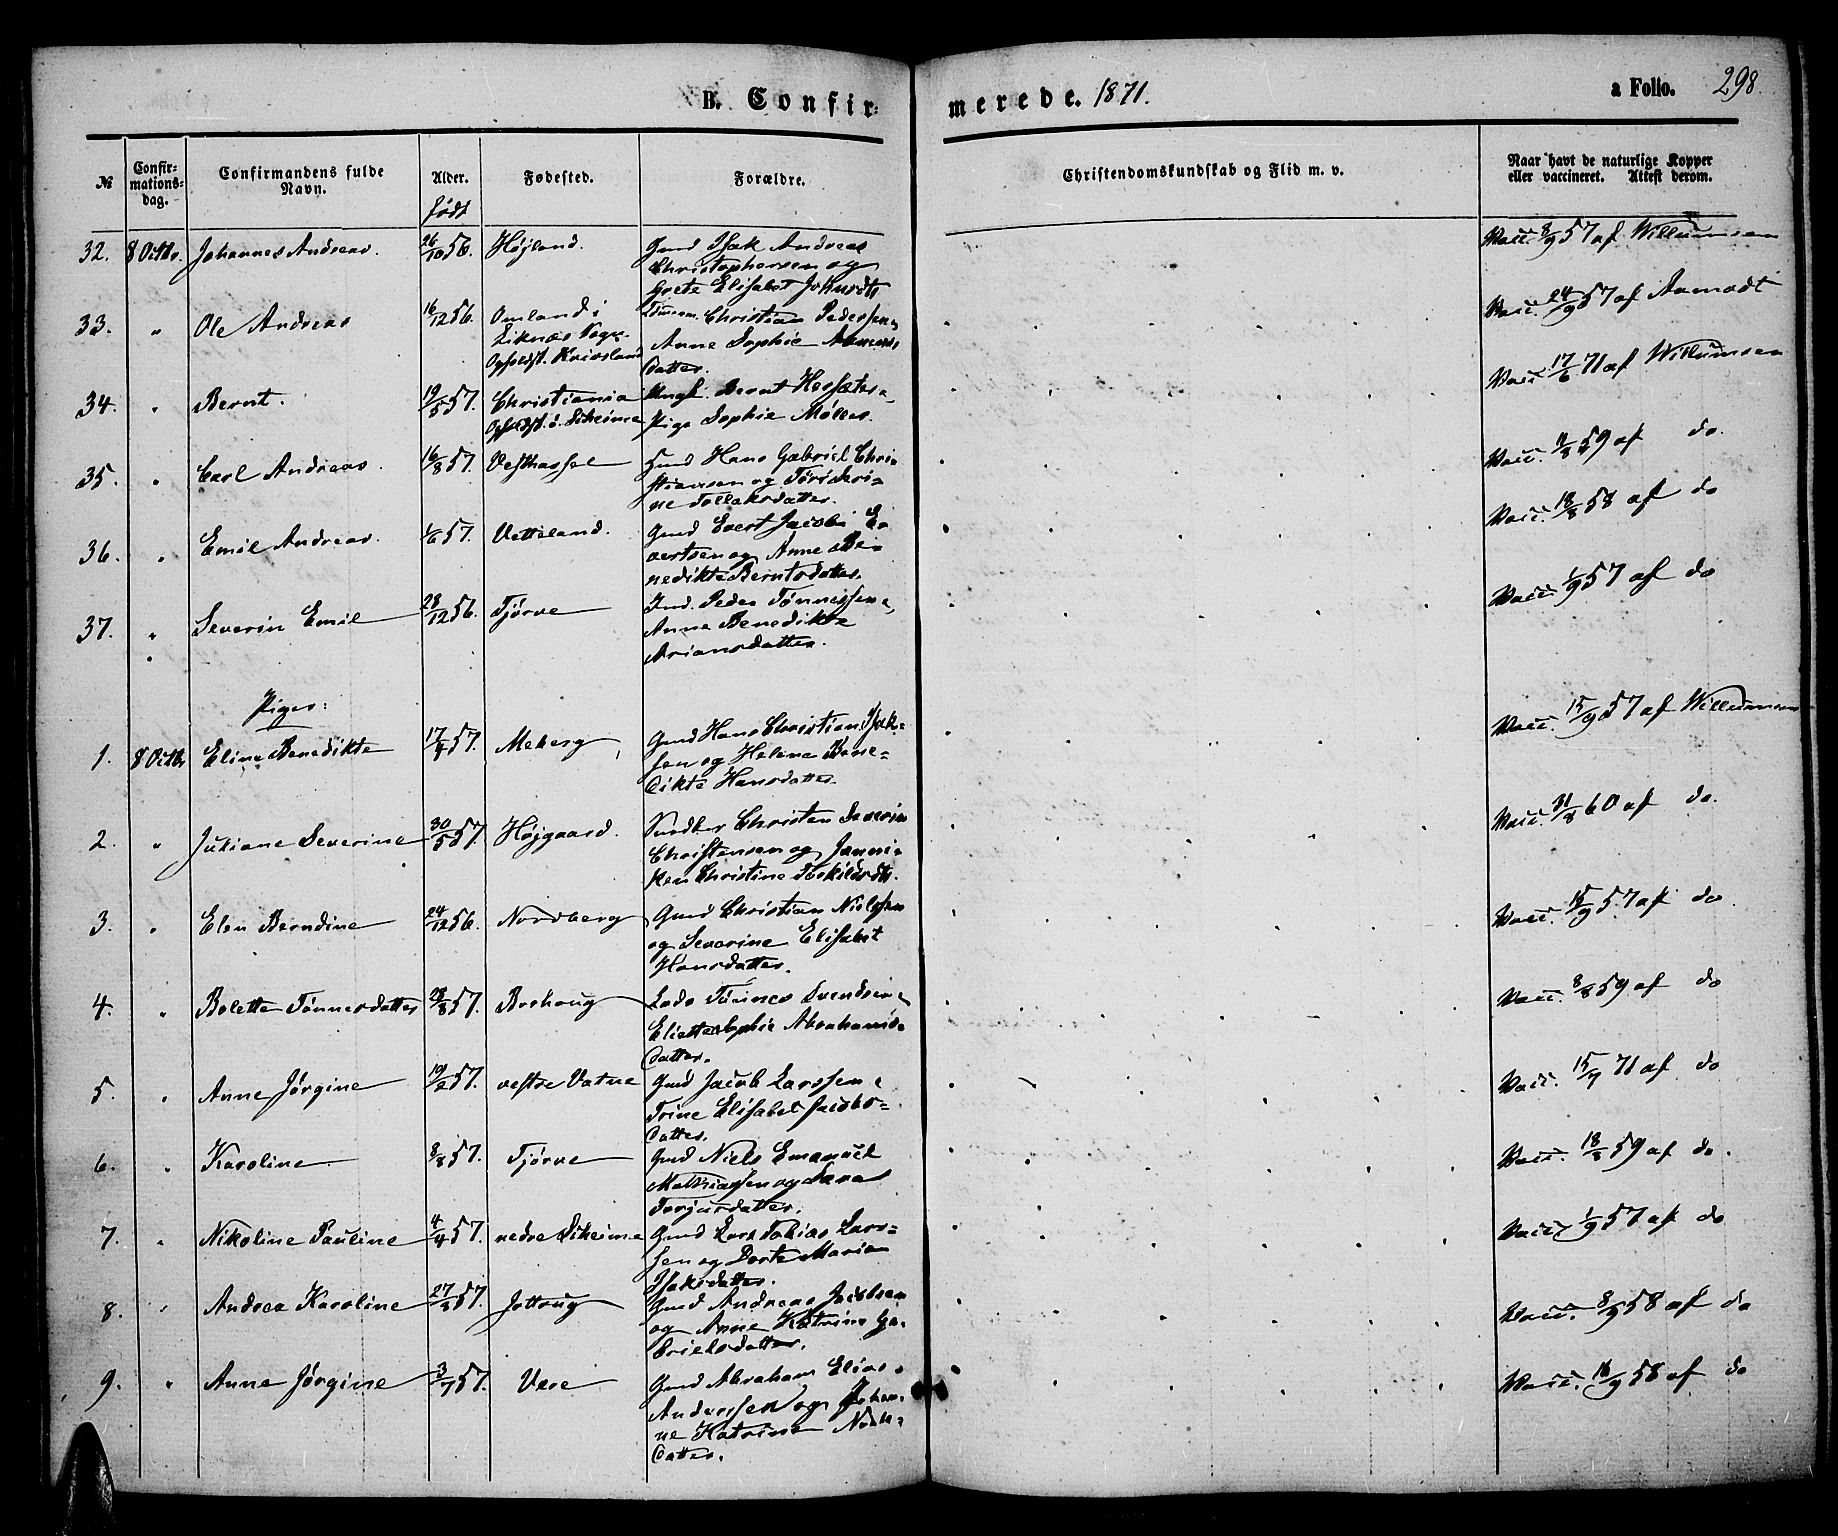 B. Confirmerede. 1871.
a Folio. 298.
№ Confirmationsdag. Confirmandens fulde Navn. Alder. født Fødested. Forældre. Christendomskundskab og Flid m. v. Naar havt de naturlige Kopper eller vaccineret. Attest derom.
32. 8 Octbr. Johannes Andreas. 26/10 56. Højland. Gmd Isak Andreas
Christophersen og
Grete Elisabet
Vacc. 8/9 57 af Willumsen
33. " Ole Andreas 16/12 56. Omland i
Liknæs Sogn
Opholdst. Kvivsland
Tømm. Christian Pedersen,
Anne Sophie
datter.
Vacc. 24/9 57 af Aamodt
34. " Bernt. 19/5 57. Christiania
Opholdst. ø. Sikeime
Ungk. Bernt
Pige Sophie Møller.
Vacc. 17/6 71 af Willumsen
35. " Carl Andreas. 16/8 57. Vesthassel Gmd Hans Gabriel Chri-
stiansen og
ne Tollaksdatter.
Vacc. 59 af do.
36. " Emil Andreas. 1/6 57. Vetteland. Gmd Evert Jacob E-
vertsen og Anne Be-
nedikte Berntsdatter.
Vacc. 18/8 58 af do
37. " Severin Emil 28/12 56. Tjørve Ind. Peder Tønnessen,
Anne Benedikte
Ariansdatter.
Vacc. 1/9 57 af do
Piger:
1. 8 Octbr Eline Benedikte 57. Meberg Gmd Hans Christian Isak-
sen og Helene Bene-
dikte Hansdatter.
Vacc. 15/9 57 af Willumsen
2. " Juliane Severine 30/5 57. Højgaard. Christen Severin
Christensen og Janni-
ken Christine
Vacc. 31/8 60 af do.
3. " Elen Berndine 24/12 56. Nordberg Gmd Christian Nielsen
og Severine Elisabet
Hansdatter.
Vacc. 15/9 57 af do
4. " Bolette Tønnesdatter 28/8 57. Brekoug Lods Tønnes Svendsen,
Sophie Abrahams-
datter.
Vacc. 8/8 59 af do
5. " Anne Jørgine 19/2 57. vestre Vatne Gmd Jacob Larssen,
Trine Elisabet Jacobs-
datter.
Vacc. 71 af do
6. " Karoline 8/8 57. Tjørve Gmd Niels Emanuel
Mathiassen og Sara
Torjusdatter.
Vacc. 18/8 59 af do.
7. " Nikoline Pauline 4/4 57. nedre Sikeime Gmd Lars Tobias Lars-
sen og Dorte Maria
Isaksdatter.
Vacc. 1/9 57 af do
8. " Andrea Karoline 27/3 57. Jottoug Gmd Andreas Jacobsen
og Anne Katrine Ga-
brielsdatter.
Vacc. 8/9 58 af do
9. " Anne Jørgine 3/7 57. Vere Gmd Abraham Elias
Anderssen og Johan-
ne Katrine
datter.
Vacc. 16/9 58 af do